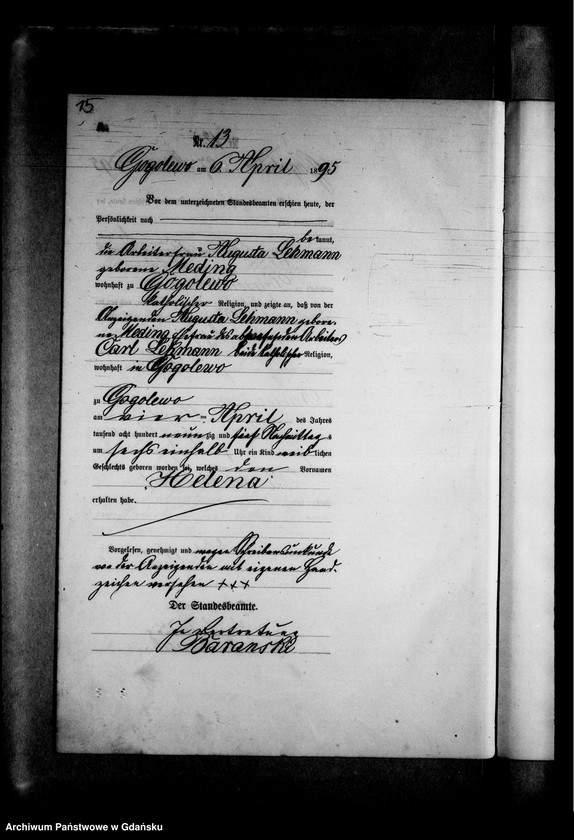 15
Nr. 13
Gogolewo am 6 April 1895
Vor dem unterzeichneten Standesbeamten erschien heute, der
Persönlichkeit nach
be kannt,
die Arbeiterfrau Augusta Lehmann
geborene Meding
wohnhaft zu Gogolewo
katholischer Religion, und zeigte an, daß von der
Anzeigenden Augusta Lehmann gebore-
ne Meding Ehefrau des abwesenden Arbeiters
Carl Lehmann beide katholischer Religion,
wohnhaft in Gogolewo
zu Gogolewo
am vier ten April des Jahres
tausend acht hundert neunzig und fünf Nachmittags
um sechs einhalb Uhr ein Kind weib lichen
Geschlechts geboren worden sei, welches den Vornamen
Helena
erhalten habe.
Vorgelesen, genehmigt und wegen Schreibensunkunde
von der Anzeigenden mit eigenen Hand-
zeichen versehen +++
Der Standesbeamte.
In Vertretung
Baranski
Archiwum Państwowe w Gdańsku